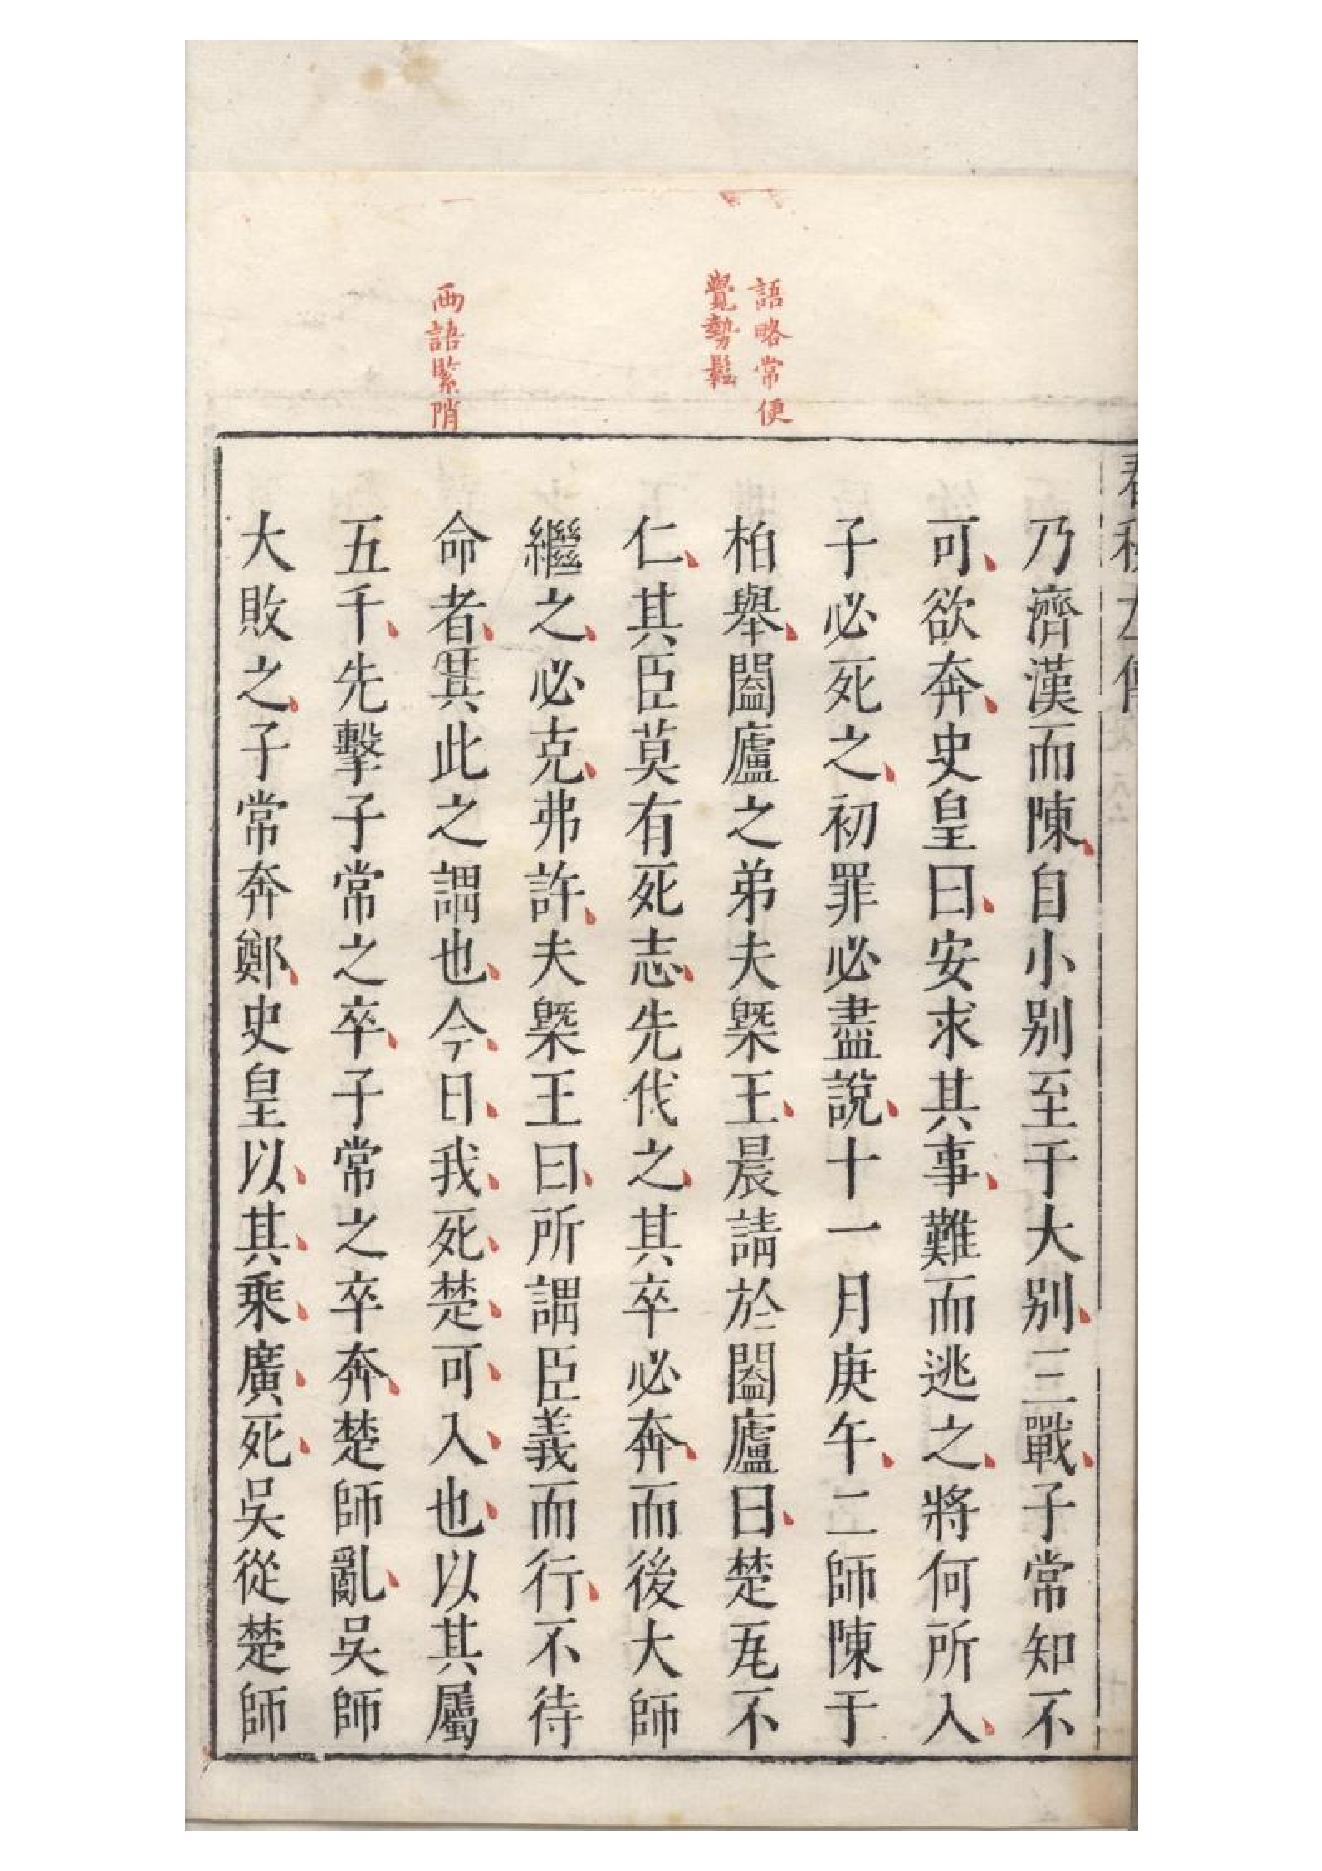 春秋左傳
乃濟漢而陳自小别至于大别三戰子常知不
可欲奔史皇曰安求其事難而逃之將何所入
子必死之初罪必盡說十一月庚午二師陳于
柏舉闔廬之弟夫槩王晨請於闔廬曰楚瓦不
仁其臣莫有死志先伐之其卒必奔而後大師
繼之必克弗許夫槩王曰所謂臣義而行不待
命者其此之謂也今日我死楚可入也以其屬
五千先擊子常之卒子常之卒奔楚師亂吳師
大敗之子常奔鄭史皇以其乘廣死吳從楚師
語略常便
覺勢鬆
両語緊陗